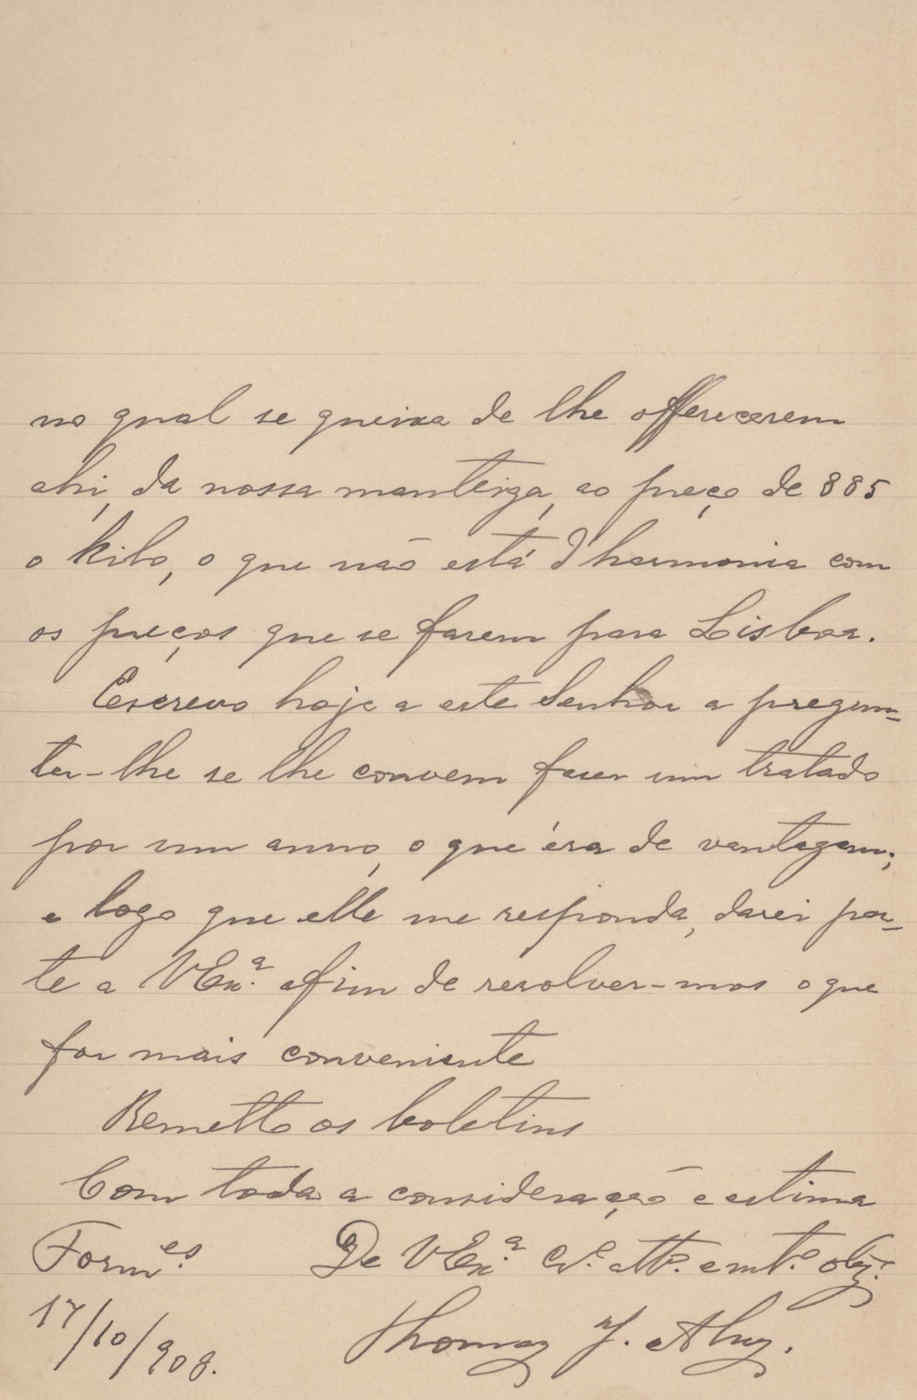 no qual se queixa de lhe offerecerem
ahi, da nossa manteiga, ao preço de 885
o kilo, o que não está d'harmonia com
os preços que se fazem para Lisboa.
Escrevo hoje a este Senhor a pregun=
tar-lhe se lhe convem fazer um tratado
por um anno, o que éra de vantagem;
e logo que elle me responda, darei par=
te a VExª. afim de resolver-mos o que
for mais conveniente
Remetto os boletins
Com toda a consideração e estima
Formes. De VExª. Cº. attº. e mtº. obgº.
17/10/908. Thomaz J. Alvz.